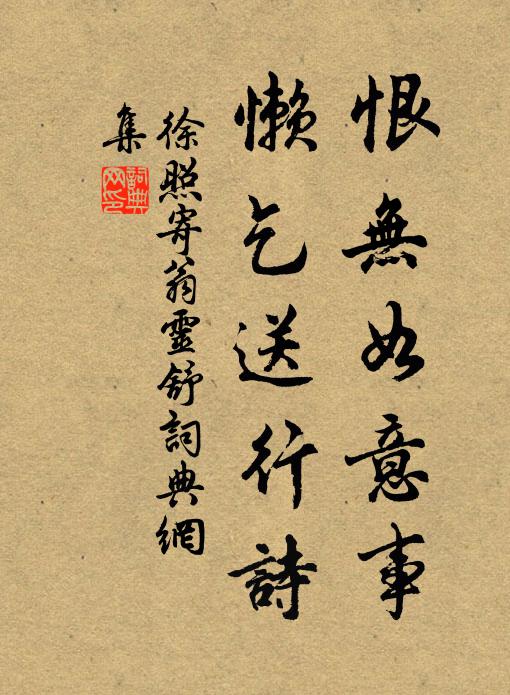 恨無如意事
懶乞送行詩
徐照寄翁靈舒詞典網
集
詞典
网印